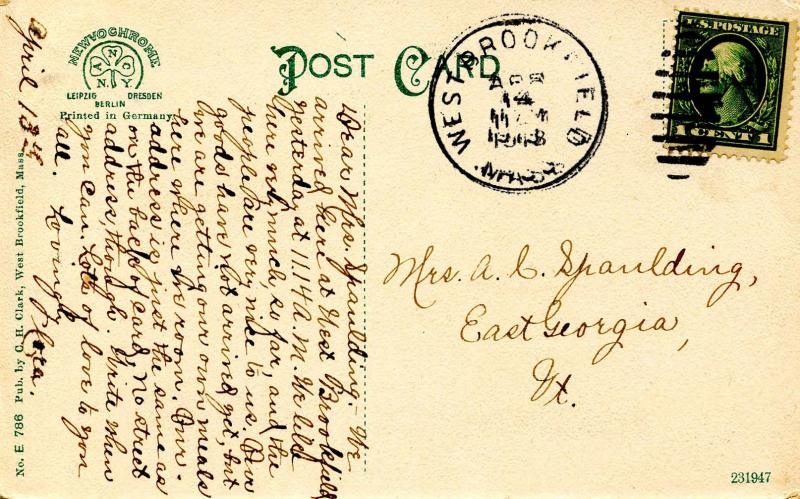 NEWVOCHROME
A N C O
N. Y.
LEIPZIG DRESDEN
BERLIN
Printed in Germany
POST CARD
WEST BROOKFIELD
APR
14
MASS.
U.S. POSTAGE
1 CENT 1
April 13th
Dear Mrs. Spaulding:- We
arrived here at West Brookfield
yesterday at 11:14 A.M. We like
here very much, so far, and the
people are very nice to us. Our
goods have not arrived yet, but
we are getting our own meals
here where we room. Our
address is just the same as
on the back of card, no street
address though. Write when
you can. Lots of love to you
all. Lovingly,
Mrs. A. C. Spaulding,
East Georgia,
Vt.
No. E 786 Pub. by C. H. Clark, West Brookfield, Mass.
231947